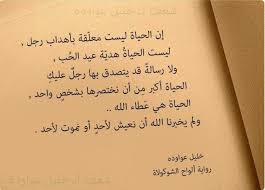 إن الحياة ليست معلّقة بأهداب رجل ,
ليست الحياةُ هديّة عيد الحُب ,
ولا رسالةً قد يتصدق بها رجلٌ عليكِ
الحياة أكبر مِن أن نختصرها بشخصٍ واحد ,
الحياة هي عَطاء الله ..
ولم يخبرنا الله أن نعيش لأحدٍ أو نموت لأحد .
خليل عواوده
رواية ألواح الشوكولاة